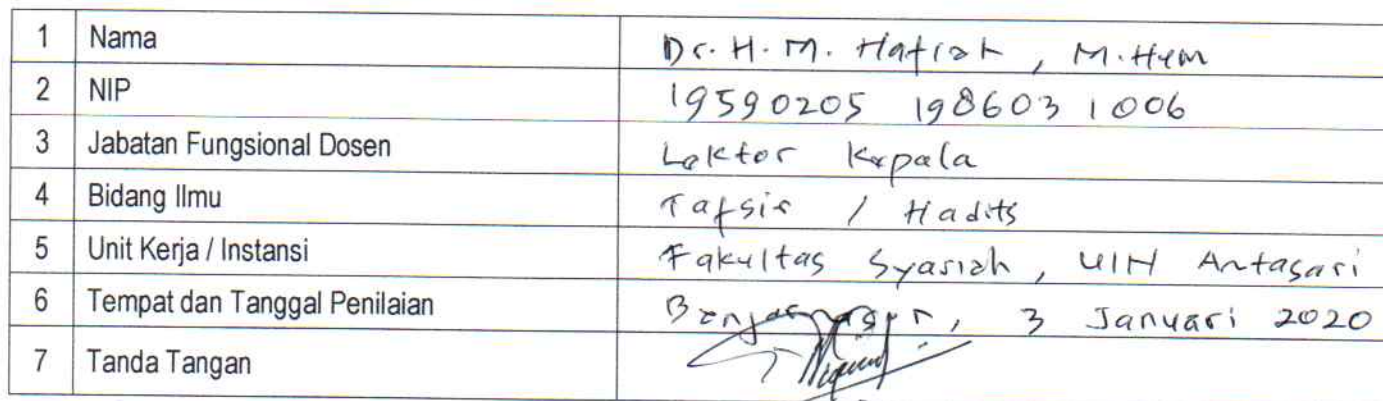 1 Nama Dr. H. M. Hafizh , M. Hum
2 NIP 19590205 198603 1006
3 Jabatan Fungsional Dosen Lektor Kepala
4 Bidang Ilmu Tafsir / Hadits
5 Unit Kerja / Instansi Fakultas Syariah, UIN Antasari
6 Tempat dan Tanggal Penilaian Banjarmasin, 3 Januari 2020
7 Tanda Tangan